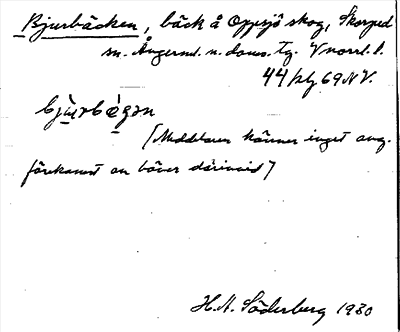 Bjurbäcken, bäck å Oppsjö skog, Skorped
sn. Ångerml. n. doms. tg. V norrl. l.
44 69 NV.
bju̇rbègən
[Meddelaren känner inget ang.
förekomst av bäver därinvid]
H.A. Söderberg 1930